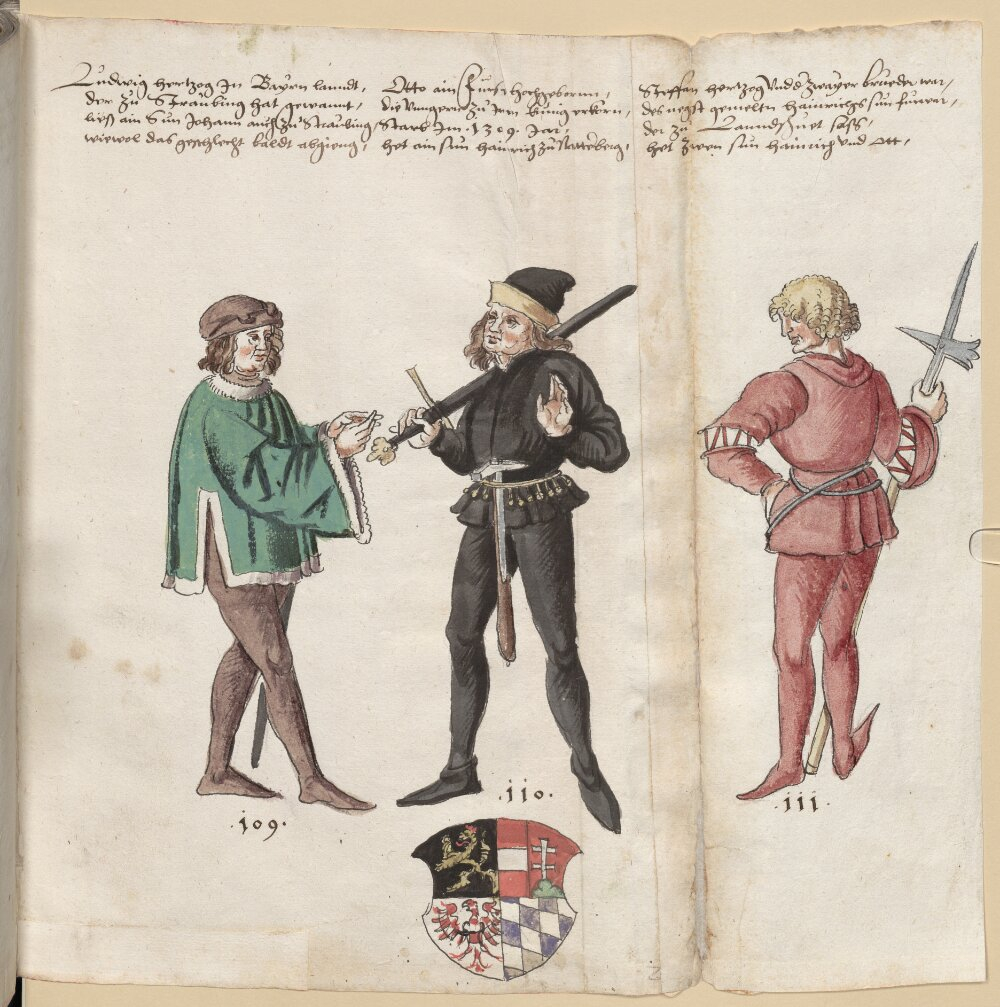 Ludwig hertzog In Bayrn lanndt,
der zu Straubing hat gewant,
lies ain Sun Johann auch zu Straubing
wiewol das geschlecht baldt abgieng,
Otto ain Furst hochgebornn,
die Vnngern zu Irm kunig erkorn,
Starb Im .1309. Jar,
het ain sun hainrich zu Natteberg,
Steffan hertzog Vnd zwayer brueder war,
des negst gemeltn hainrichs sun furwar,
der zu Lanndshuet sass,
het zwen sun hainrich vnd Ott,
.109.
.110.
.111.